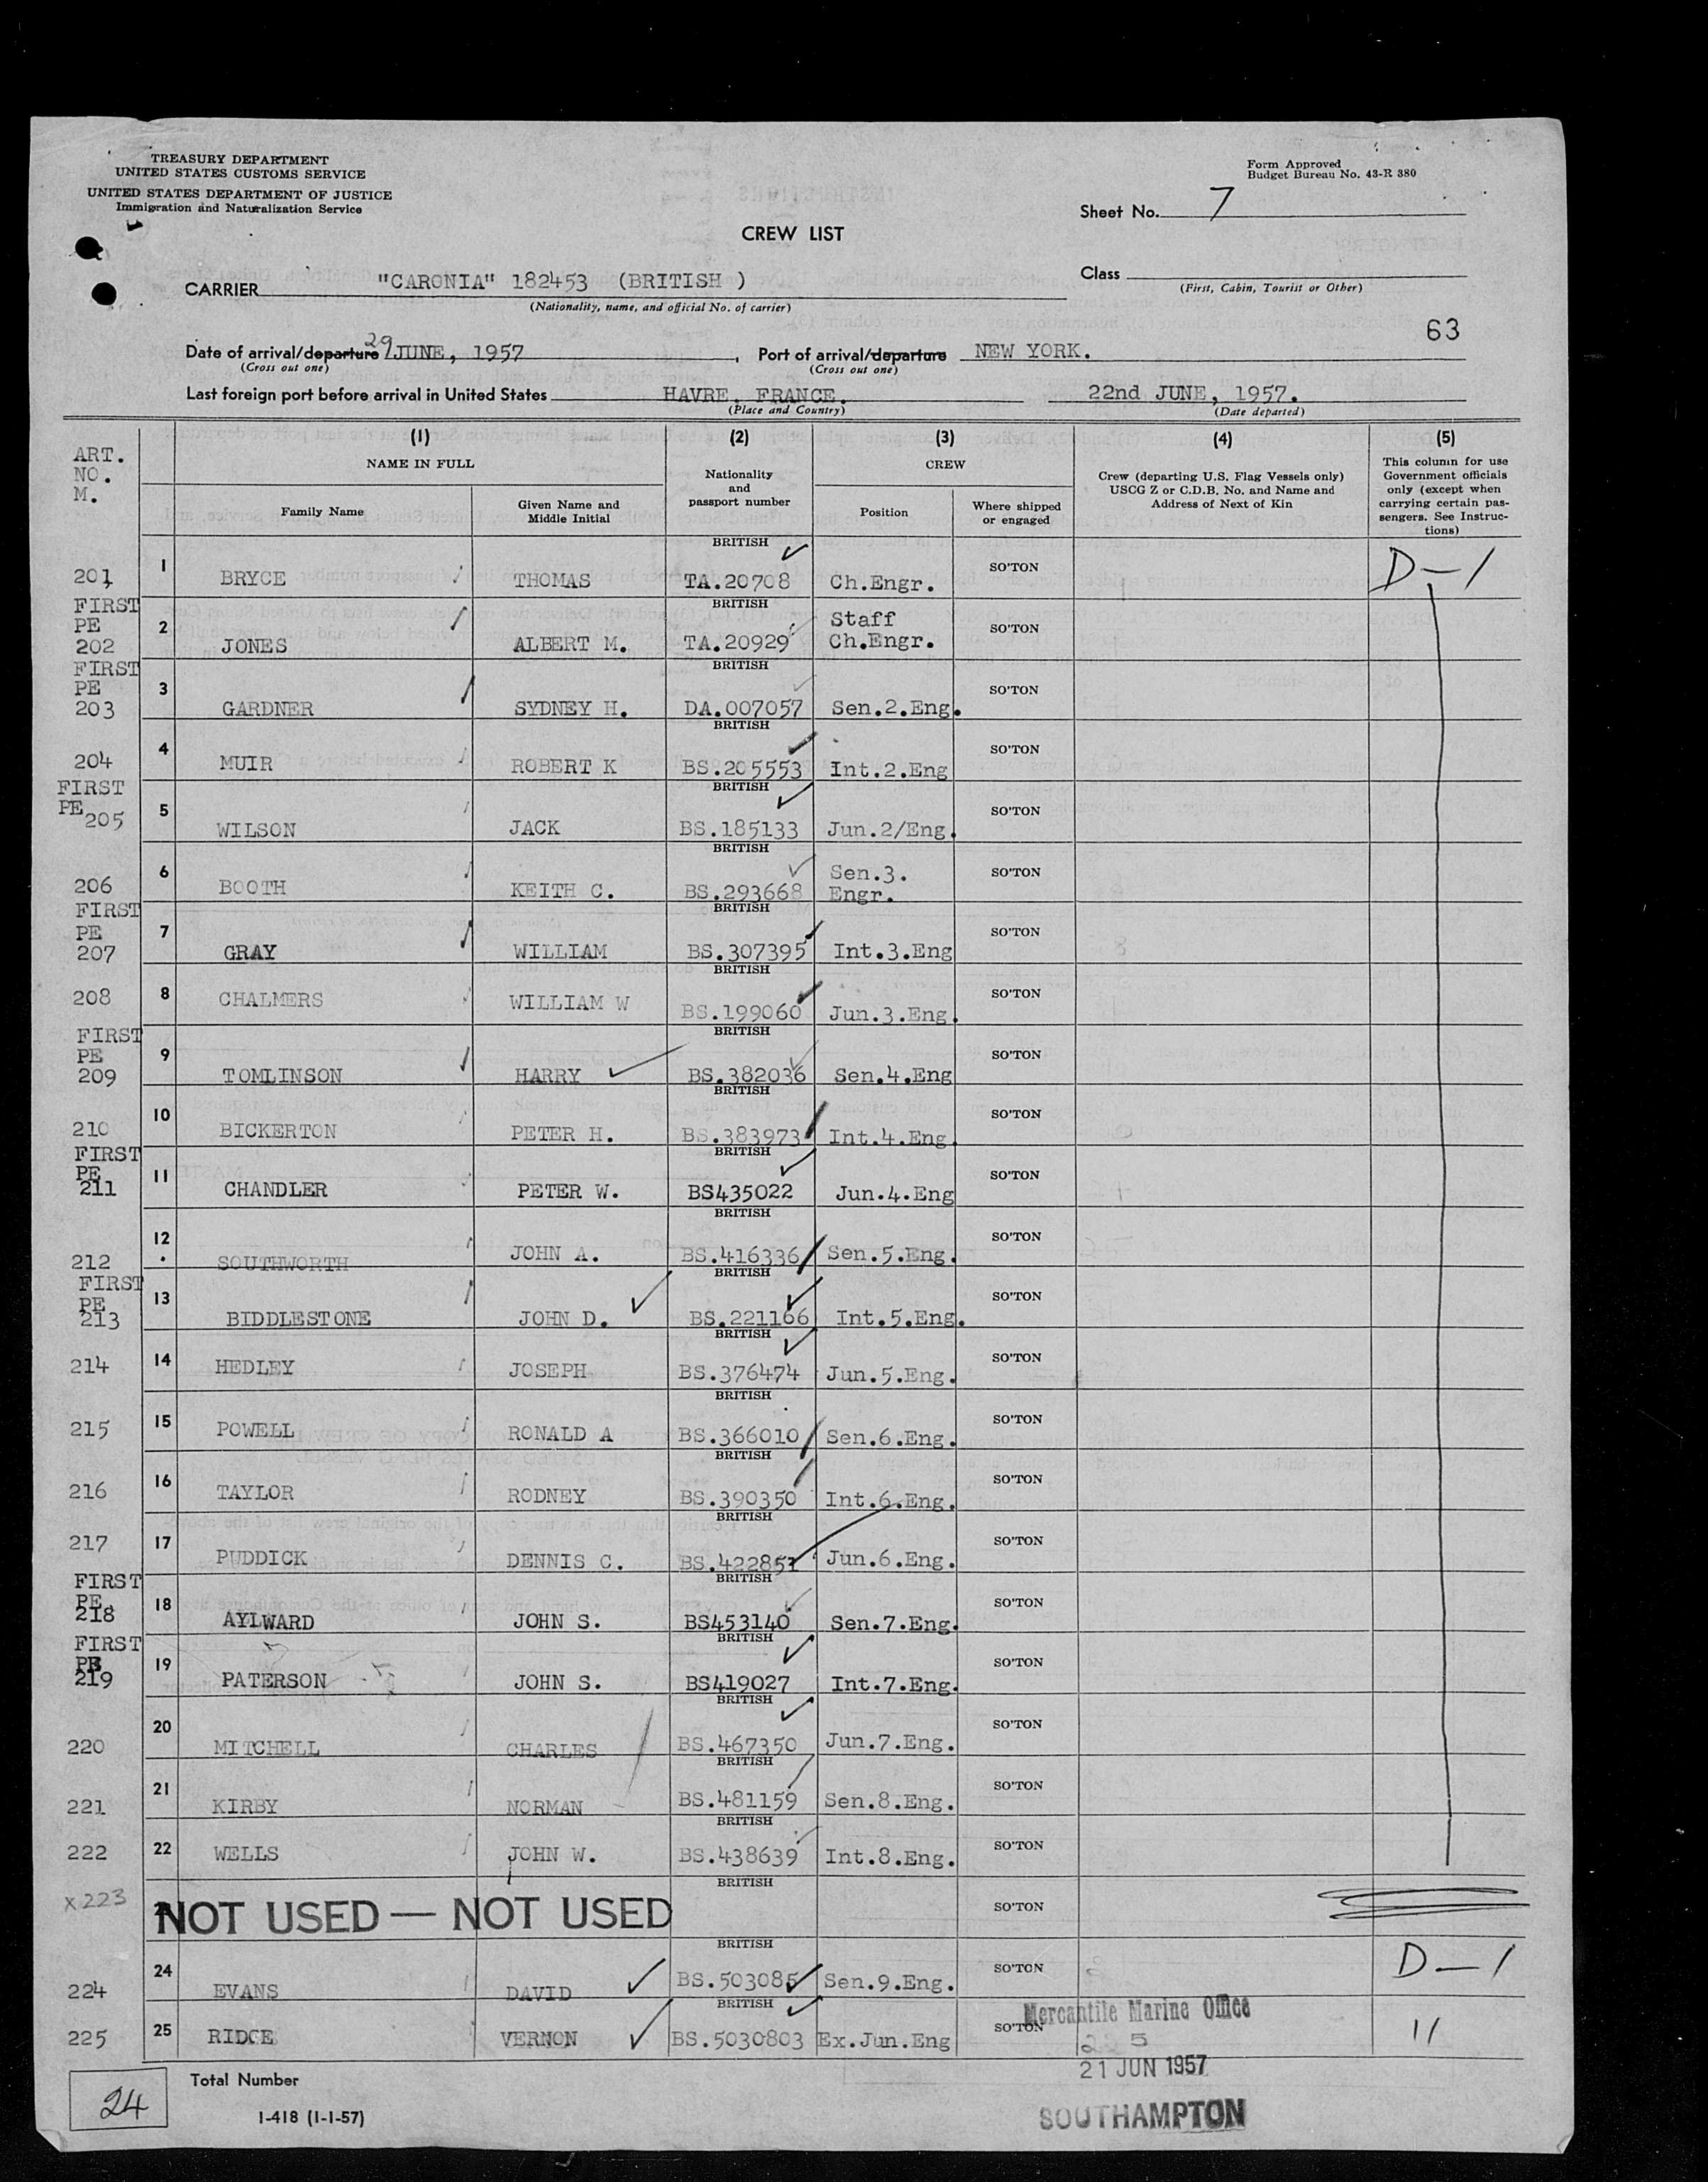 TREASURY DEPARTMENT
UNITED STATES CUSTOMS SERVICE
UNITED STATES DEPARTMENT OF JUSTICE
Immigration and Naturalization Service
Form Approved
Budget Bureau No. 43-R 380
Sheet No. 7
CREW LIST
CARRIER "CARONIA" 182453 (BRITISH )
(Nationality, name, and official No. of carrier)
Class
(First, Cabin, Tourist or Other)
63
Date of arrival/departure 29 JUNE, 1957, Port of arrival/departure NEW YORK.
(Cross out one) (Cross out one)
Last foreign port before arrival in United States HAVRE, FRANCE. 22nd JUNE, 1957.
(Place and Country) (Date departed)
ART. NO. M.
(1) (2) (3) (4) (5)
NAME IN FULL
Family Name
Given Name and Middle Initial
Nationality and passport number
CREW
Position
Where shipped or engaged
Crew (departing U.S. Flag Vessels only) USCG Z or C.D.B. No. and Name and Address of Next of Kin
This column for use Government officials only (except when carrying certain passengers. See Instructions)
201 1 BRYCE THOMAS BRITISH TA.20708 Ch.Engr. SO'TON D-1
FIRST PE 202 2 JONES ALBERT M. BRITISH TA.20929 Staff Ch.Engr. SO'TON
FIRST PE 203 3 GARDNER SYDNEY H. BRITISH DA.007057 Sen.2.Eng. SO'TON
204 4 MUIR ROBERT K BRITISH BS.205553 Int.2.Eng SO'TON
FIRST PE 205 5 WILSON JACK BRITISH BS.185133 Jun.2/Eng. SO'TON
206 6 BOOTH KEITH C. BRITISH BS.293668 Sen.3. Engr. SO'TON
FIRST PE 207 7 GRAY WILLIAM BRITISH BS.307395 Int.3.Eng SO'TON
208 8 CHALMERS WILLIAM W BRITISH BS.199060 Jun.3.Eng. SO'TON
FIRST PE 209 9 TOMLINSON HARRY BRITISH BS.382036 Sen.4.Eng SO'TON
210 10 BICKERTON PETER H. BRITISH BS.383973 Int.4.Eng. SO'TON
FIRST PE 211 11 CHANDLER PETER W. BRITISH BS435022 Jun.4.Eng SO'TON
212 12 SOUTHWORTH JOHN A. BRITISH BS.416336 Sen.5.Eng. SO'TON
FIRST PE 213 13 BIDDLESTONE JOHN D. BRITISH BS.221166 Int.5.Eng. SO'TON
214 14 HEDLEY JOSEPH BRITISH BS.376474 Jun.5.Eng. SO'TON
215 15 POWELL RONALD A BRITISH BS.366010 Sen.6.Eng. SO'TON
216 16 TAYLOR RODNEY BRITISH BS.390350 Int.6.Eng. SO'TON
217 17 PUDDICK DENNIS C. BRITISH BS.422851 Jun.6.Eng. SO'TON
FIRST PE. 218 18 AYLWARD JOHN S. BRITISH BS453140 Sen.7.Eng. SO'TON
FIRST PE 219 19 PATERSON JOHN S. BRITISH BS419027 Int.7.Eng. SO'TON
220 20 MITCHELL CHARLES BRITISH BS.467350 Jun.7.Eng. SO'TON
221 21 KIRBY NORMAN BRITISH BS.481159 Sen.8.Eng. SO'TON
222 22 WELLS JOHN W. BRITISH BS.438639 Int.8.Eng. SO'TON
x 223 NOT USED — NOT USED BRITISH SO'TON
224 24 EVANS DAVID BRITISH BS.503085 Sen.9.Eng. SO'TON D-1
225 25 RIDGE VERNON BRITISH BS.5030803 Ex.Jun.Eng SO'TON 11
Mercantile Marine Office
21 JUN 1957
SOUTHAMPTON
24 Total Number
I-418 (1-1-57)